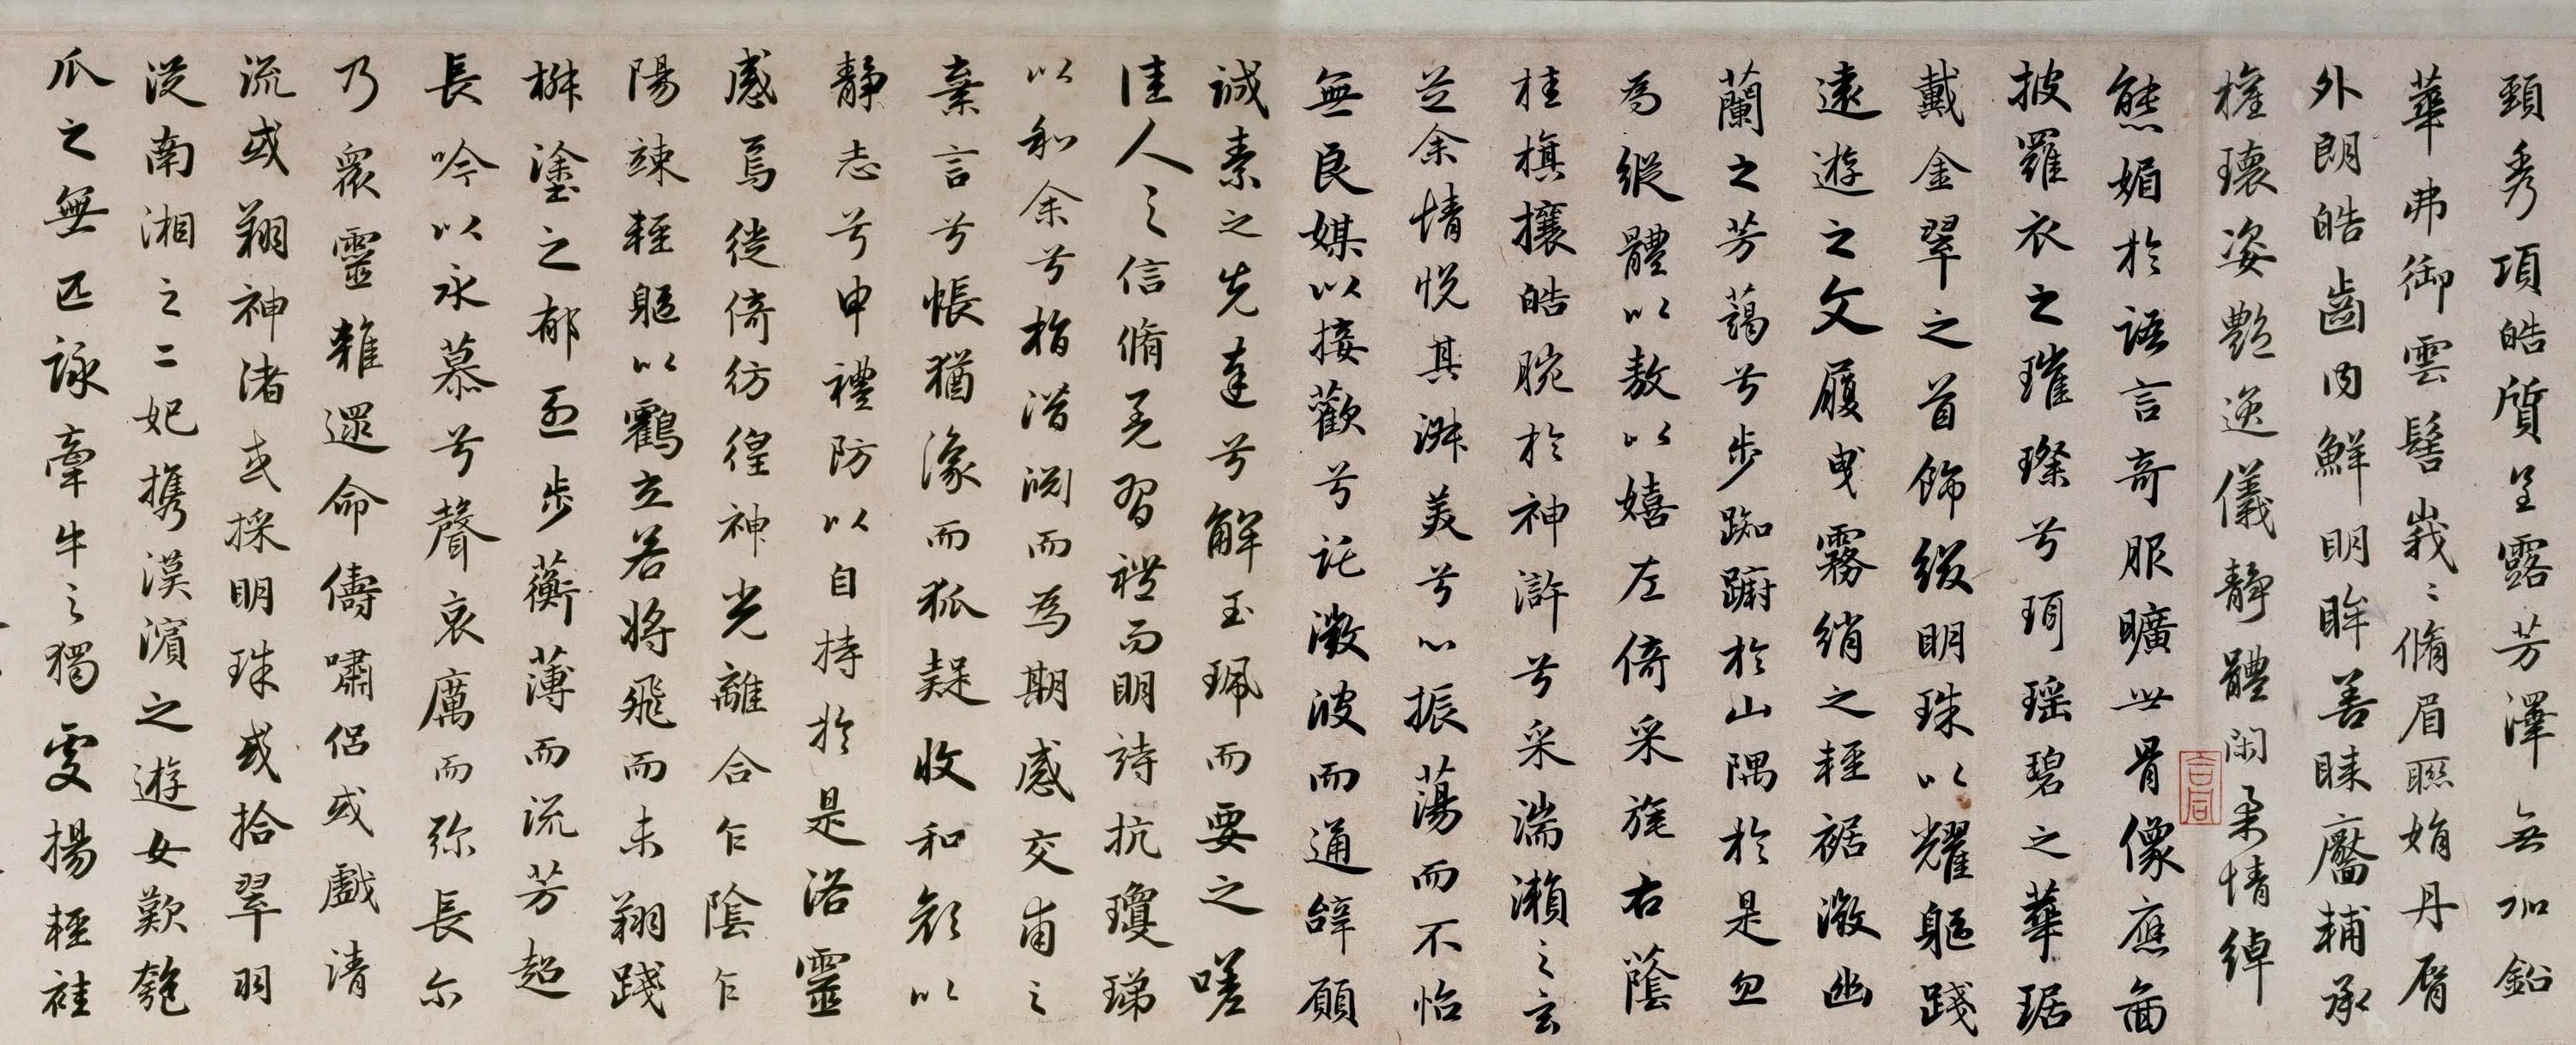 頸秀項皓質呈露芳澤無加鉛
華弗御雲髻峩〻脩眉聯娟丹脣
外朗皓齒内鮮明眸善睞靨輔承
權瓌姿豔逸儀靜體閑柔情綽
態媚於語言奇服曠世骨像應啚
披羅衣之璀璨兮珥瑶碧之華琚
戴金翠之首飾綴明珠以耀軀踐
遠遊之文履曳霧綃之輕裾微幽
蘭之芳藹兮步踟躕於山隅於是忽
為縱體以敖以嬉左倚采旄右蔭
桂旗攘皓腕於神滸兮采湍瀨之玄
芝余情悅其淑美兮心振蕩而不怡
無良媒以接歡兮託微波而通辭願
誠素之先達兮解玉珮而要之嗟
佳人之信脩羌習禮而明詩抗瓊珶
以和余兮指潛淵而為期感交甫之
棄言兮悵猶豫而狐疑收和顏以
靜志兮申禮防以自持於是洛靈
感焉徙倚彷徨神光離合乍陰乍
陽竦輕軀以鶴立若將飛而未翔踐
椒塗之郁烈步蘅薄而流芳超
長吟以永慕兮聲哀厲而弥長尓
乃衆靈雜遝命儔嘯侣或戲清
流或翔神渚或採明珠或拾翠羽
從南湘之二妃攜漢濱之遊女歎匏
瓜之無匹詠牽牛之獨處揚輕袿